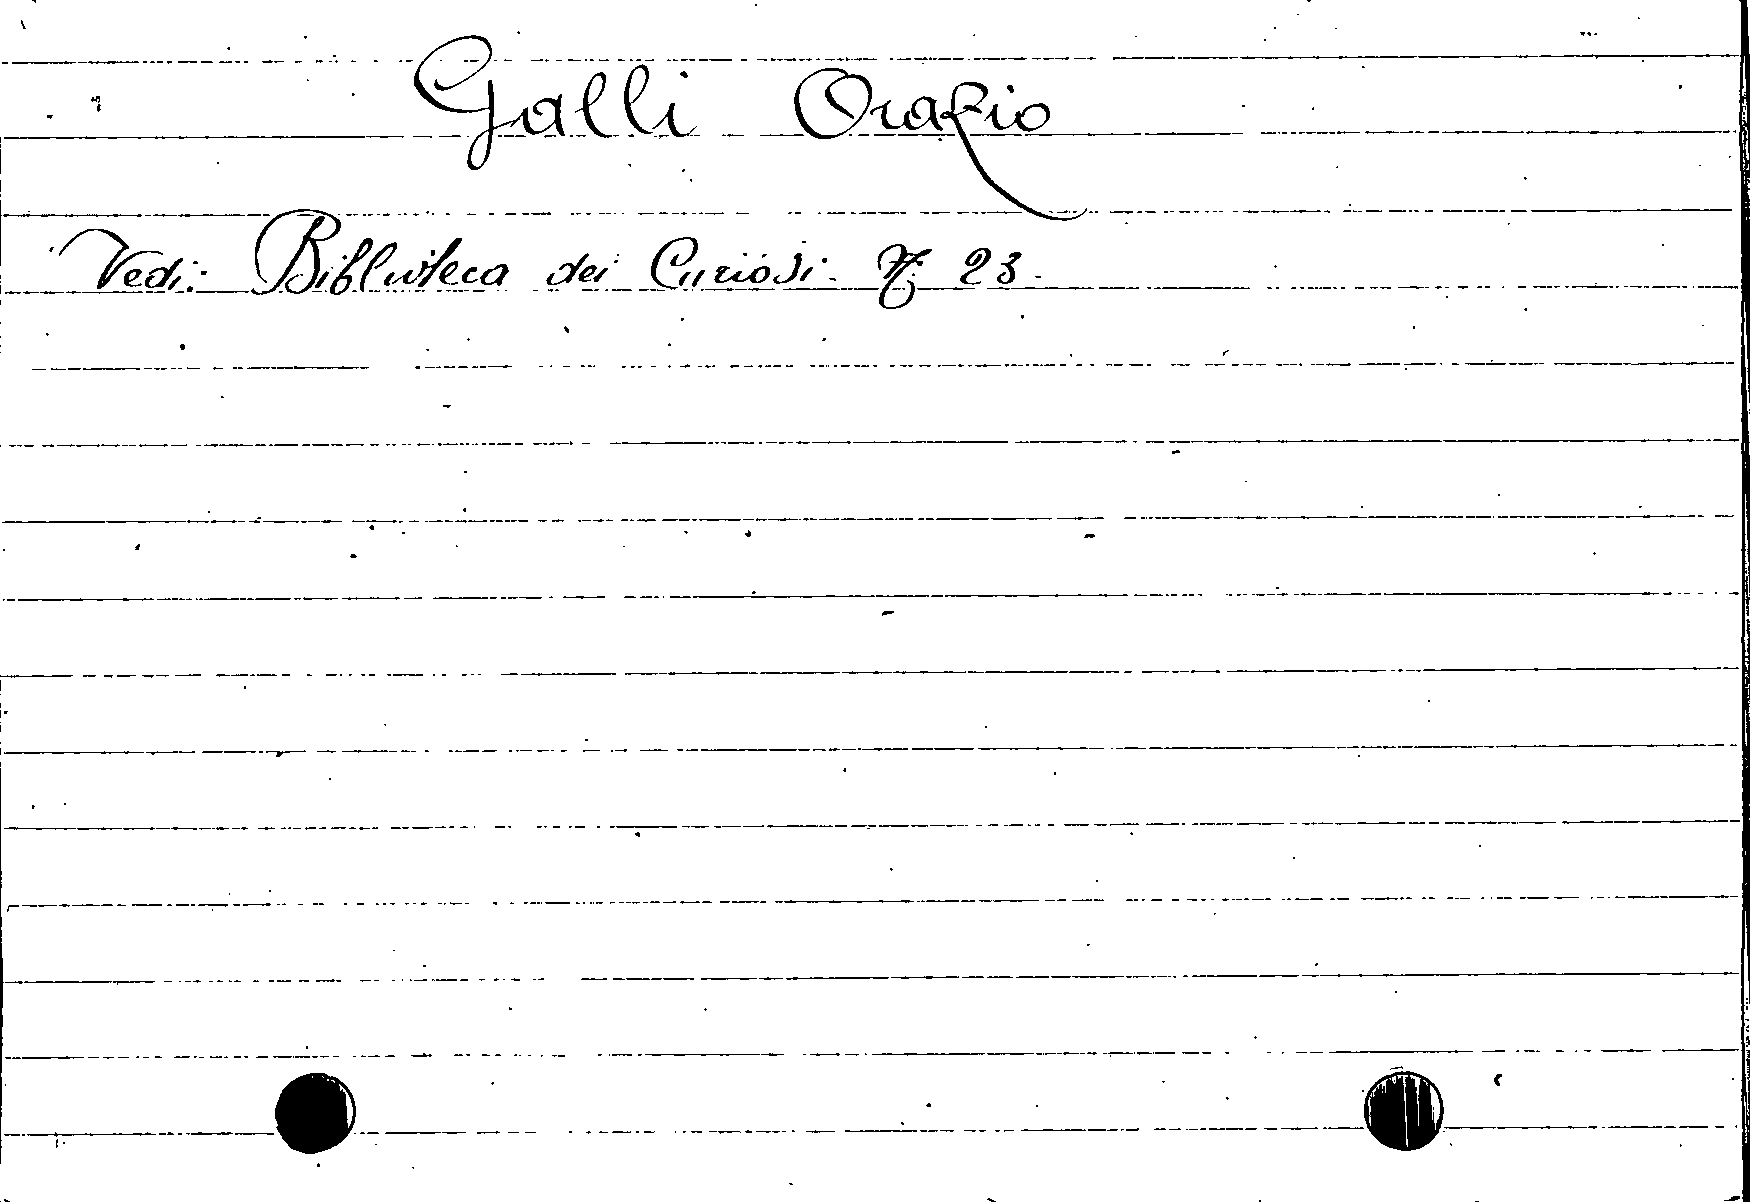 Galli Orazio
Vedi: Biblioteca dei Curiosi. N. 23.